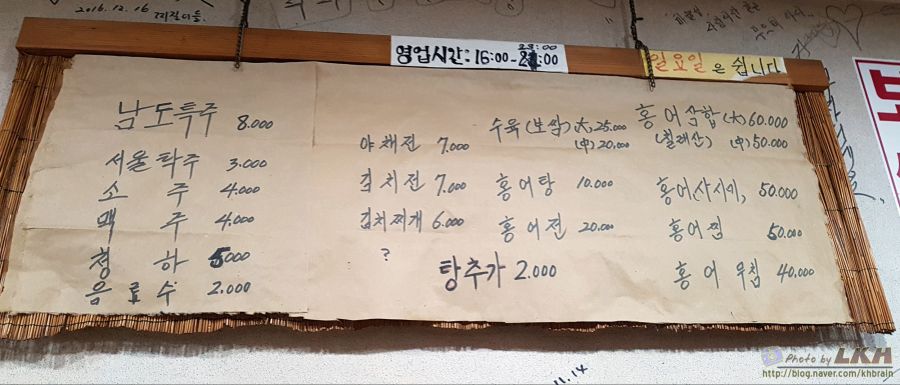 2016. 12. 16
영업시간: 16:00-23:00
일요일은 쉽니다
남도특주 8.000
서울탁주 3.000
소주 4.000
맥주 4.000
청하 5000
음료수 2.000
야채전 7.000
김치전 7.000
김치찌개 6.000
?
수육(보쌈) 大 25.000
(中) 20.000
홍어탕 10.000
홍어전 20.000
탕추가 2.000
홍어삼합 (大) 60.000
(칠레산) (中) 50.000
홍어(사시미) 50.000
홍어찜 50.000
홍어무침 40.000
11.14
Photo by LKH
http://blog.naver.com/khbrain